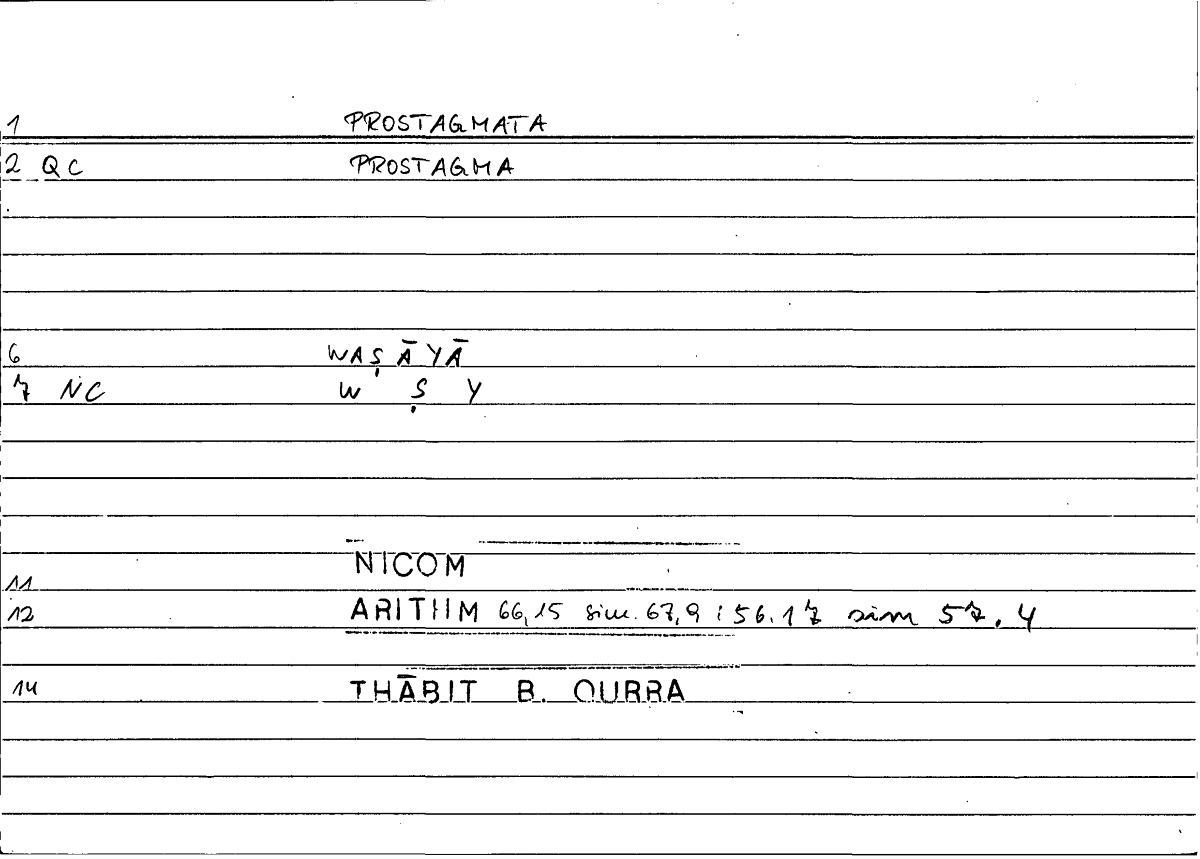 1 PROSTAGMATA
2 QC PROSTAGMA
6 WAṢĀYĀ
7 NC W Ṣ Y
NICOM
11
12 ARITHM 66,15 sim. 67,9 : 56.17 sim 57.4
14 THĀBIT B. QURRA